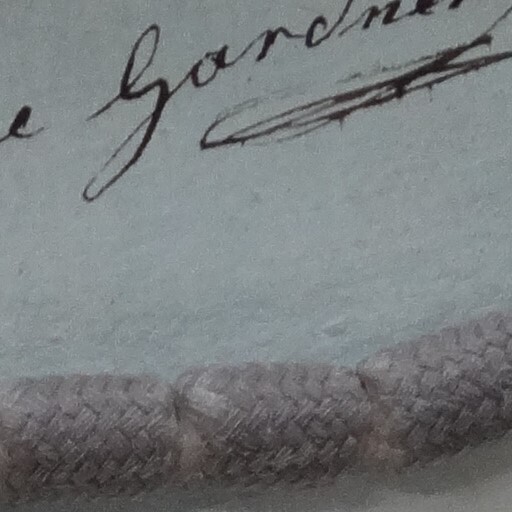 e Gardner